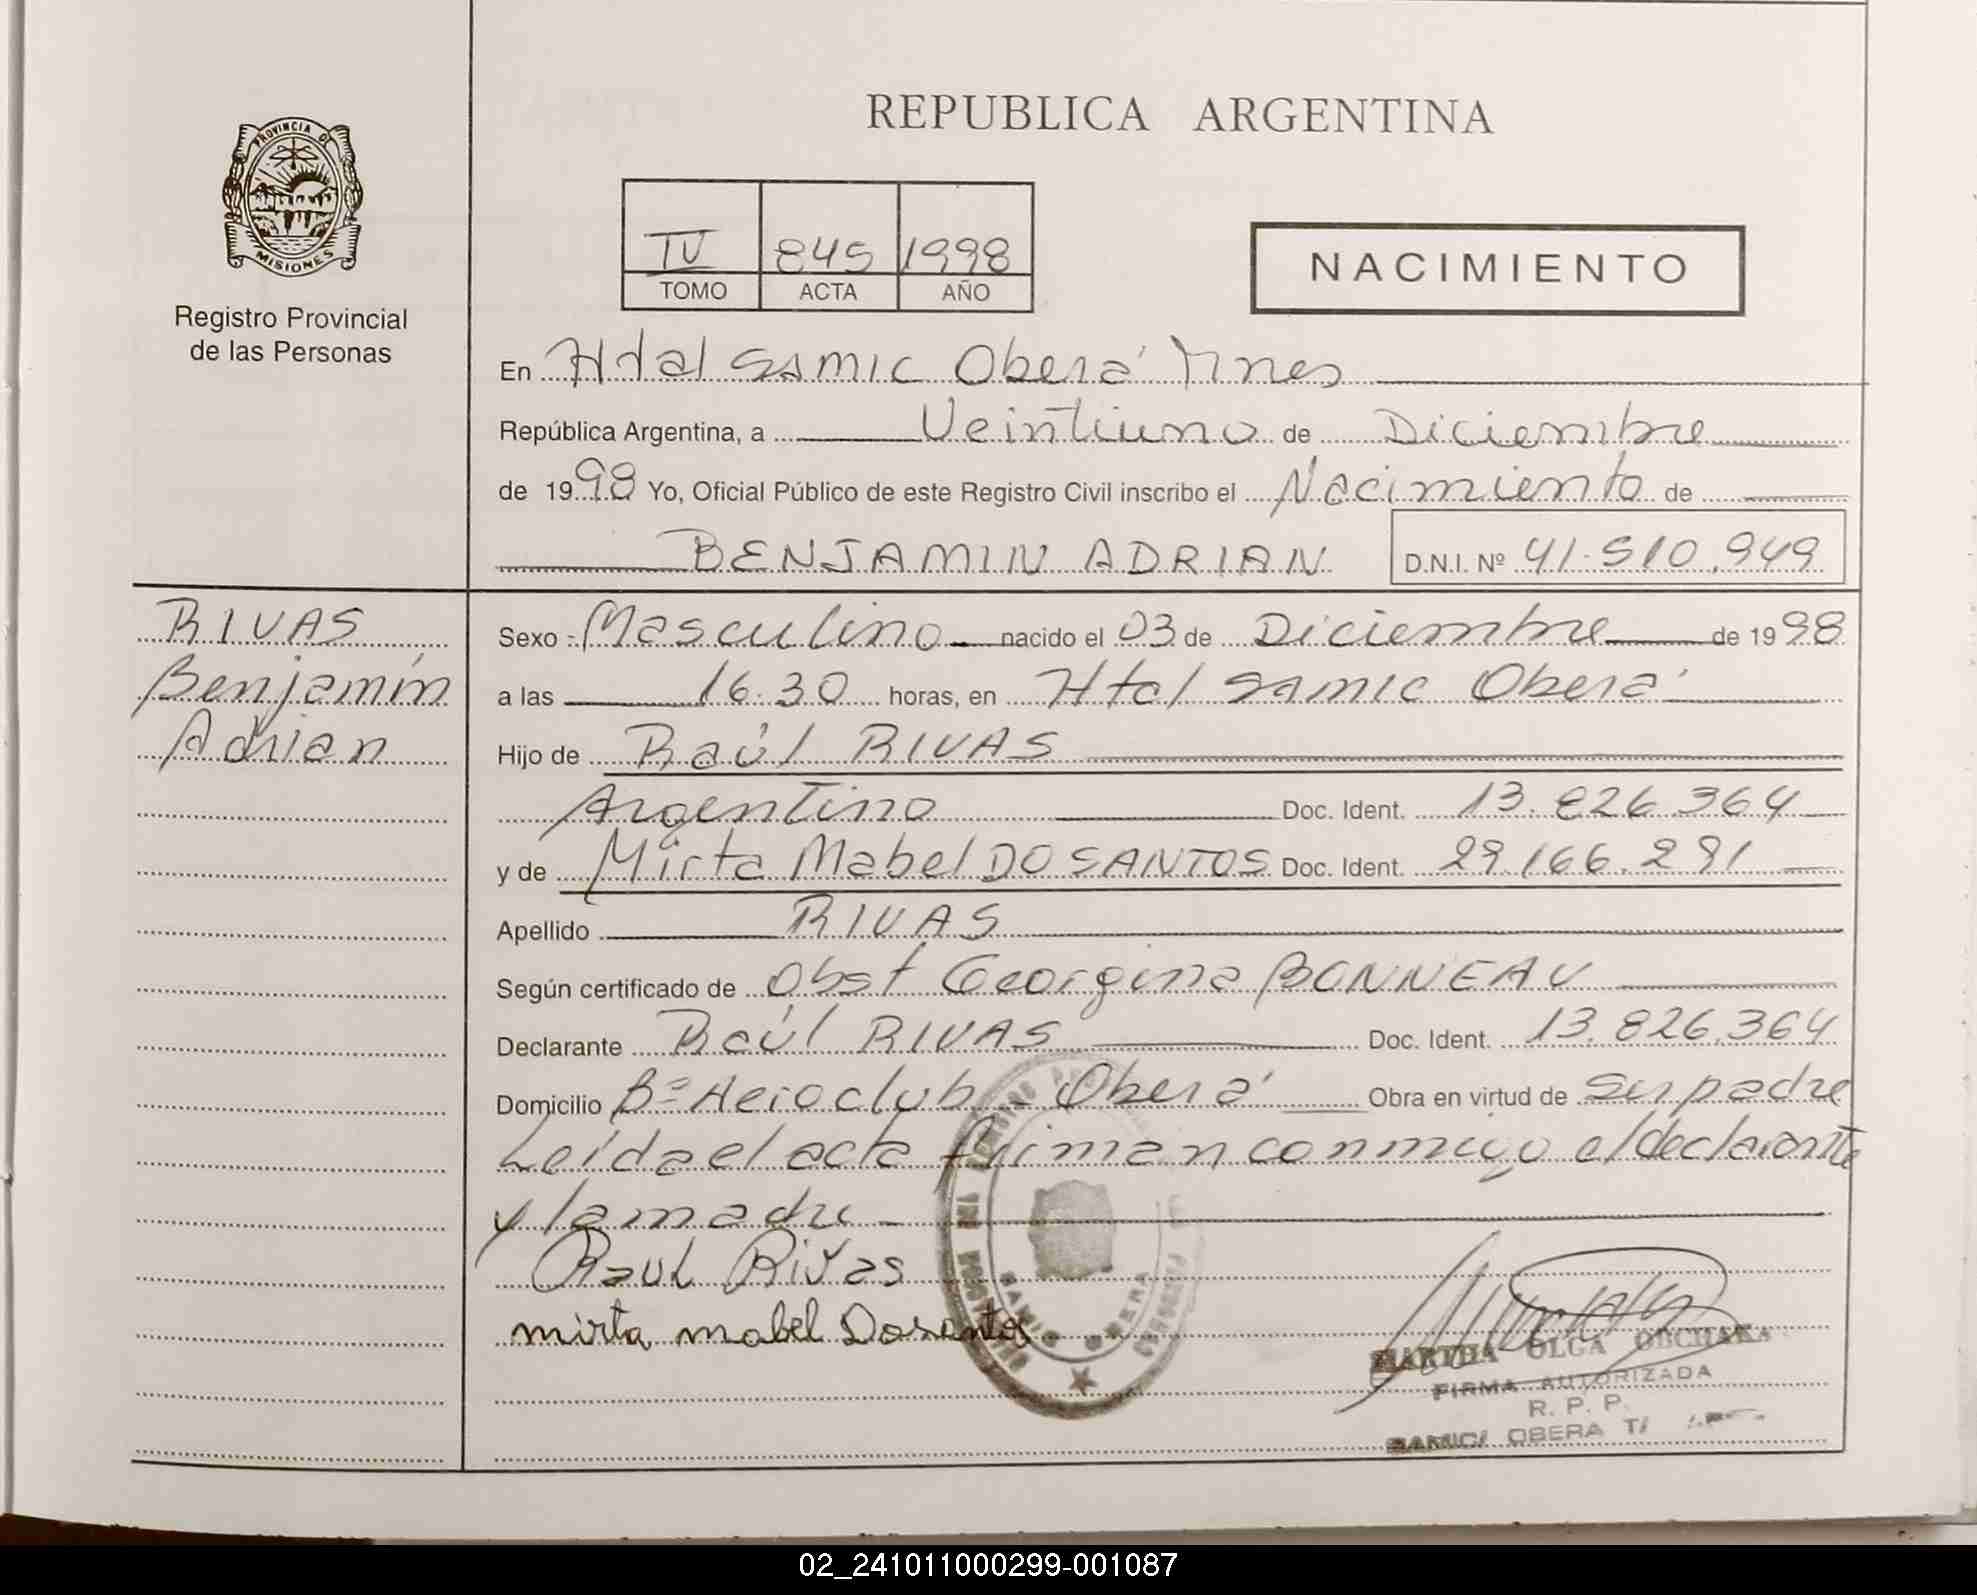 REPUBLICA ARGENTINA
PROVINCIA DE
MISIONES
Registro Provincial
de las Personas
IV 845 1998
TOMO ACTA AÑO
NACIMIENTO
En Htal SAMIC Oberá Mnes
República Argentina, a Veintiuno de Diciembre
de 1998 Yo, Oficial Público de este Registro Civil inscribo el Nacimiento de
BENJAMIN ADRIAN D.N.I. Nº 41.510.949
RIVAS
Benjamín
Adrian
Sexo: Masculino nacido el 03 de Diciembre de 1998
a las 16.30 horas, en Htal SAMIC Oberá
Hijo de Raúl RIVAS
Argentino Doc. Ident. 13.826.364
y de Mirta Mabel DO SANTOS Doc. Ident. 29.166.291
Apellido RIVAS
Según certificado de Obst Georgina BONNEAU
Declarante Raúl RIVAS Doc. Ident. 13.826.364
Domicilio Bº Aeroclub - Oberá Obra en virtud de ser padre
Leída el acta firman conmigo el declarante
y la madre
Raul Rivas
mirta mabel Dosantos
MARTHA OLGA
FIRMA AUTORIZADA
R. P. P.
SAMIC/ OBERA
02_241011000299-001087